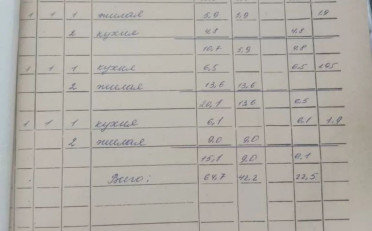 1 1 1 жилая 5,9 5,9
2 кухня 4,8 4,8
10,7 5,9 4,8
1 1 1 кухня 6,5 6,5
2 жилая 13,6 13,6
20,1 13,6 6,5
1 1 1 кухня 6,1 6,1
2 жилая 9,0 9,0
15,1 9,0 6,1
Всего: 64,7 42,2 22,5